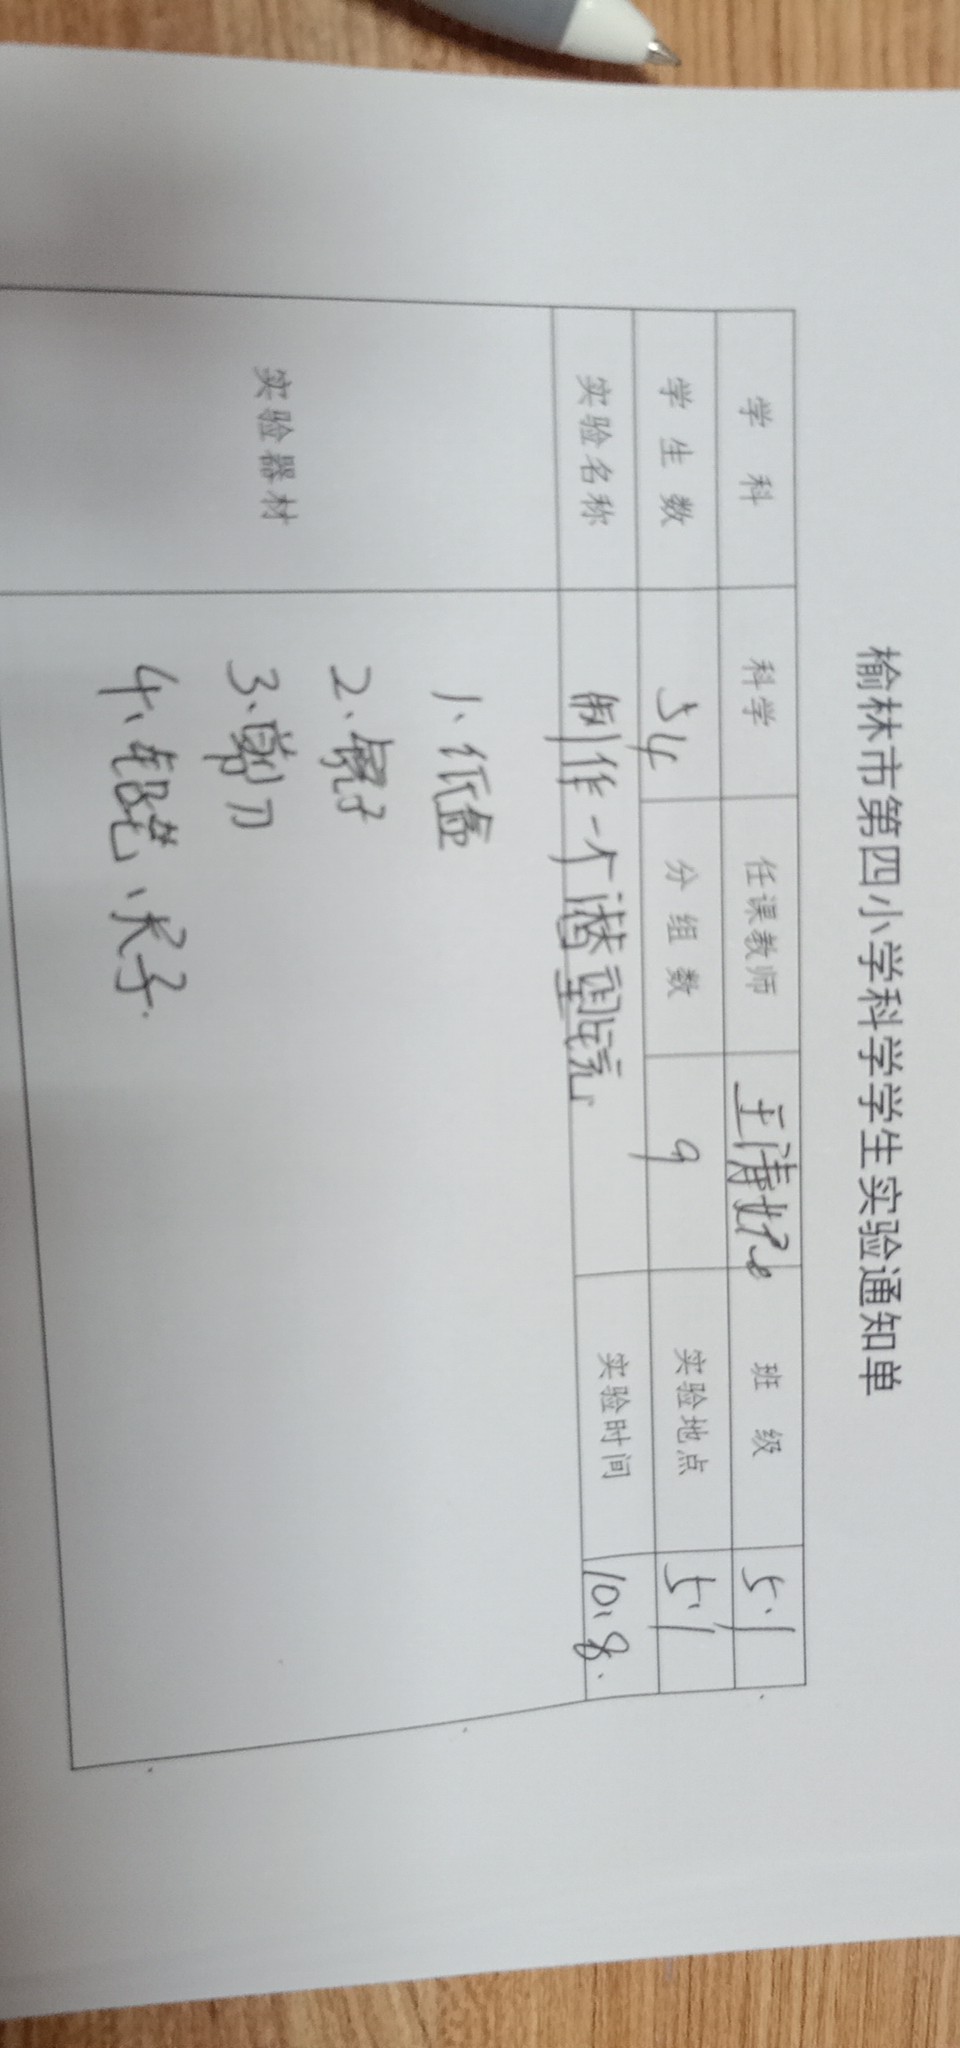 榆林市第四小学科学学生实验通知单
学 科 科学 任课教师 王清 班 级 5.1
学 生 数 54 分 组 数 9 实验地点 5.1
实验名称 制作一个潜望镜 实验时间 10.8.
实验器材
1、纸盒
2、镜子
3、剪刀
4、铅笔、尺子.